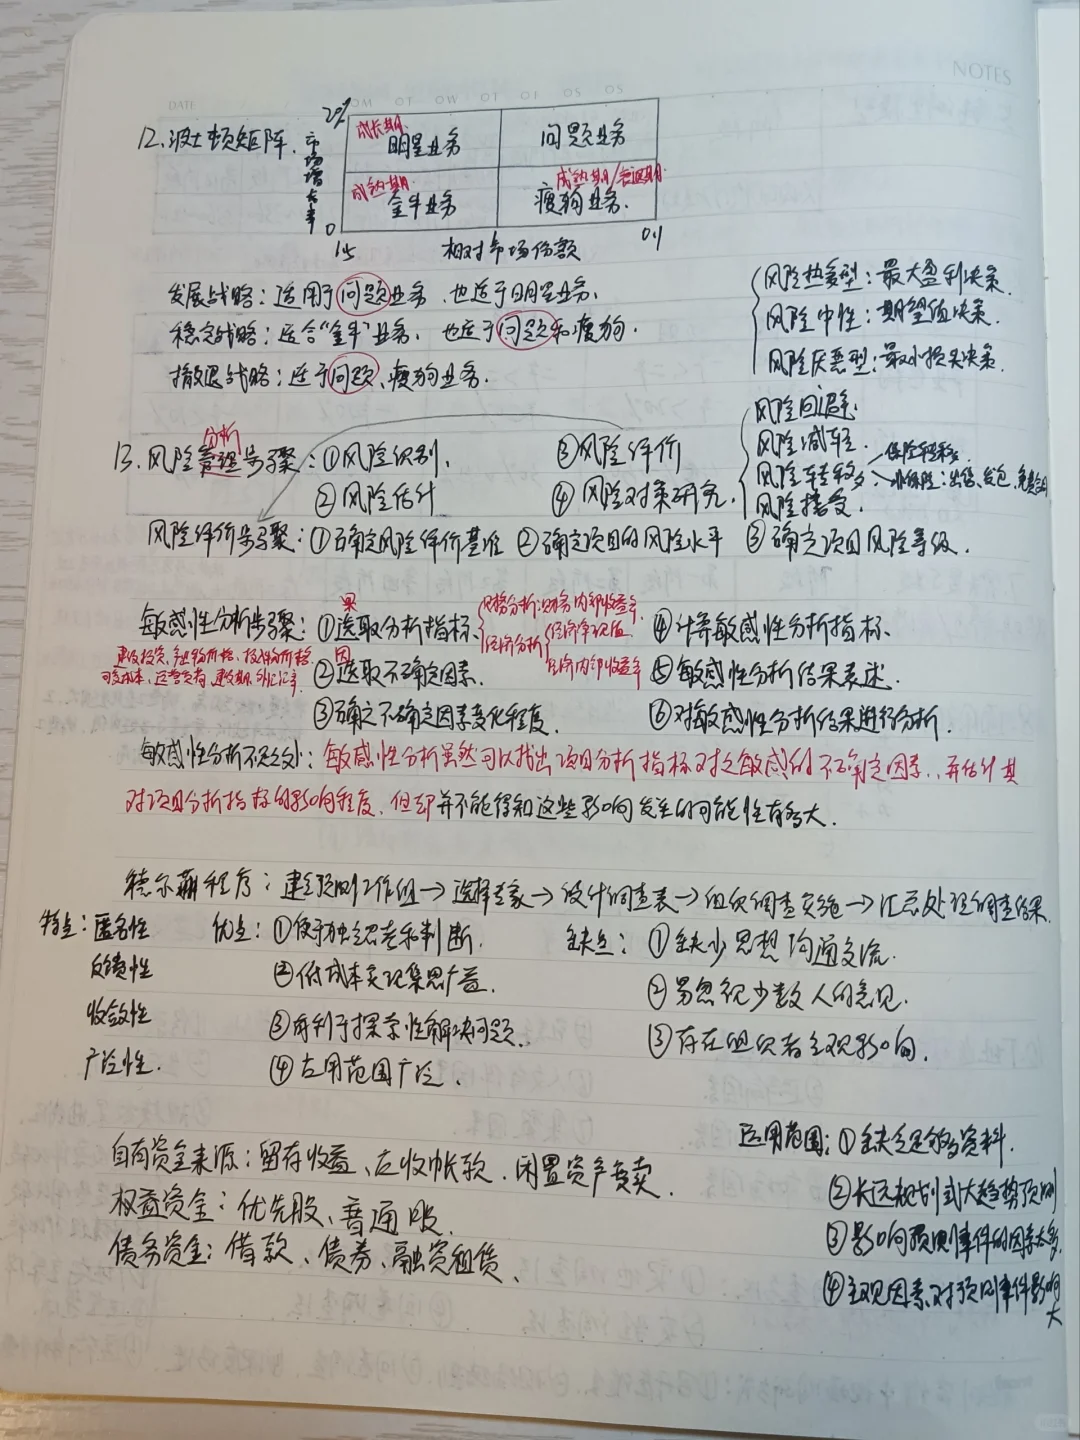 NOTES
DATE
12.波士顿矩阵.
市场增长率
20%
0
成长期
明星业务
问题业务
成熟期
金牛业务
成熟期/衰退期
瘦狗业务.
1.5
相对市场份额
0.1
发展战略：适用于问题业务、也适于明星业务.
稳定战略：适合"金牛"业务、也适于问题和瘦狗
撤退战略：适于问题、瘦狗业务.
风险热爱型：最大盈利决策.
风险中性：期望值决策.
风险厌恶型：最小损失决策.
分析
13.风险管理步骤：①风险识别、 ③风险评价
②风险估计 ④风险对策研究.
风险回避
风险减轻
风险转移 保险转移
非保险：出售、发包、免责合同
风险接受.
风险评价步骤：①确定风险评价基准 ②确定项目的风险水平 ③确定项目风险等级.
果
敏感性分析步骤：①选取分析指标. ④计算敏感性分析指标.
财务分析：财务内部收益率
经济分析 经济净现值
经济内部收益率
因
②选取不确定因素. ⑤敏感性分析结果表述.
建设投资、产出物价格、投入物价格
可变成本、运营负荷、建设期、外汇汇率
③确定不确定因素变化程度. ⑥对敏感性分析结果进行分析.
敏感性分析不足之处：敏感性分析虽然可以找出项目分析指标对之敏感的不确定因素，并估计其
对项目分析指标的影响程度，但却并不能得知这些影响发生的可能性有多大.
德尔菲程序：建立预测工作组→选择专家→设计调查表→组织调查实施→汇总处理调查结果.
特点：匿名性 优点：①便于独立思考和判断. 缺点：①缺少思想沟通交流.
反馈性 ②低成本实现集思广益. ②易忽视少数人的意见.
收敛性 ③有利于探索性解决问题. ③存在组织者主观影响.
广泛性. ④应用范围广泛.
自有资金来源：留存收益、应收帐款、闲置资产变卖.
权益资金：优先股、普通股.
债务资金：借款、债券、融资租赁、
适用范围：①缺乏足够资料.
②长远规划或大趋势预测
③影响预测事件的因素太多.
④主观因素对预测事件影响大